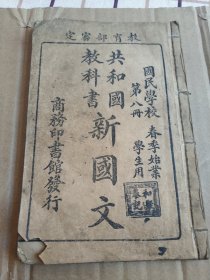 教育部審定
國民學校
第八冊
春季始業
學生用
共和國
教科書
新國文
商務印書館發行